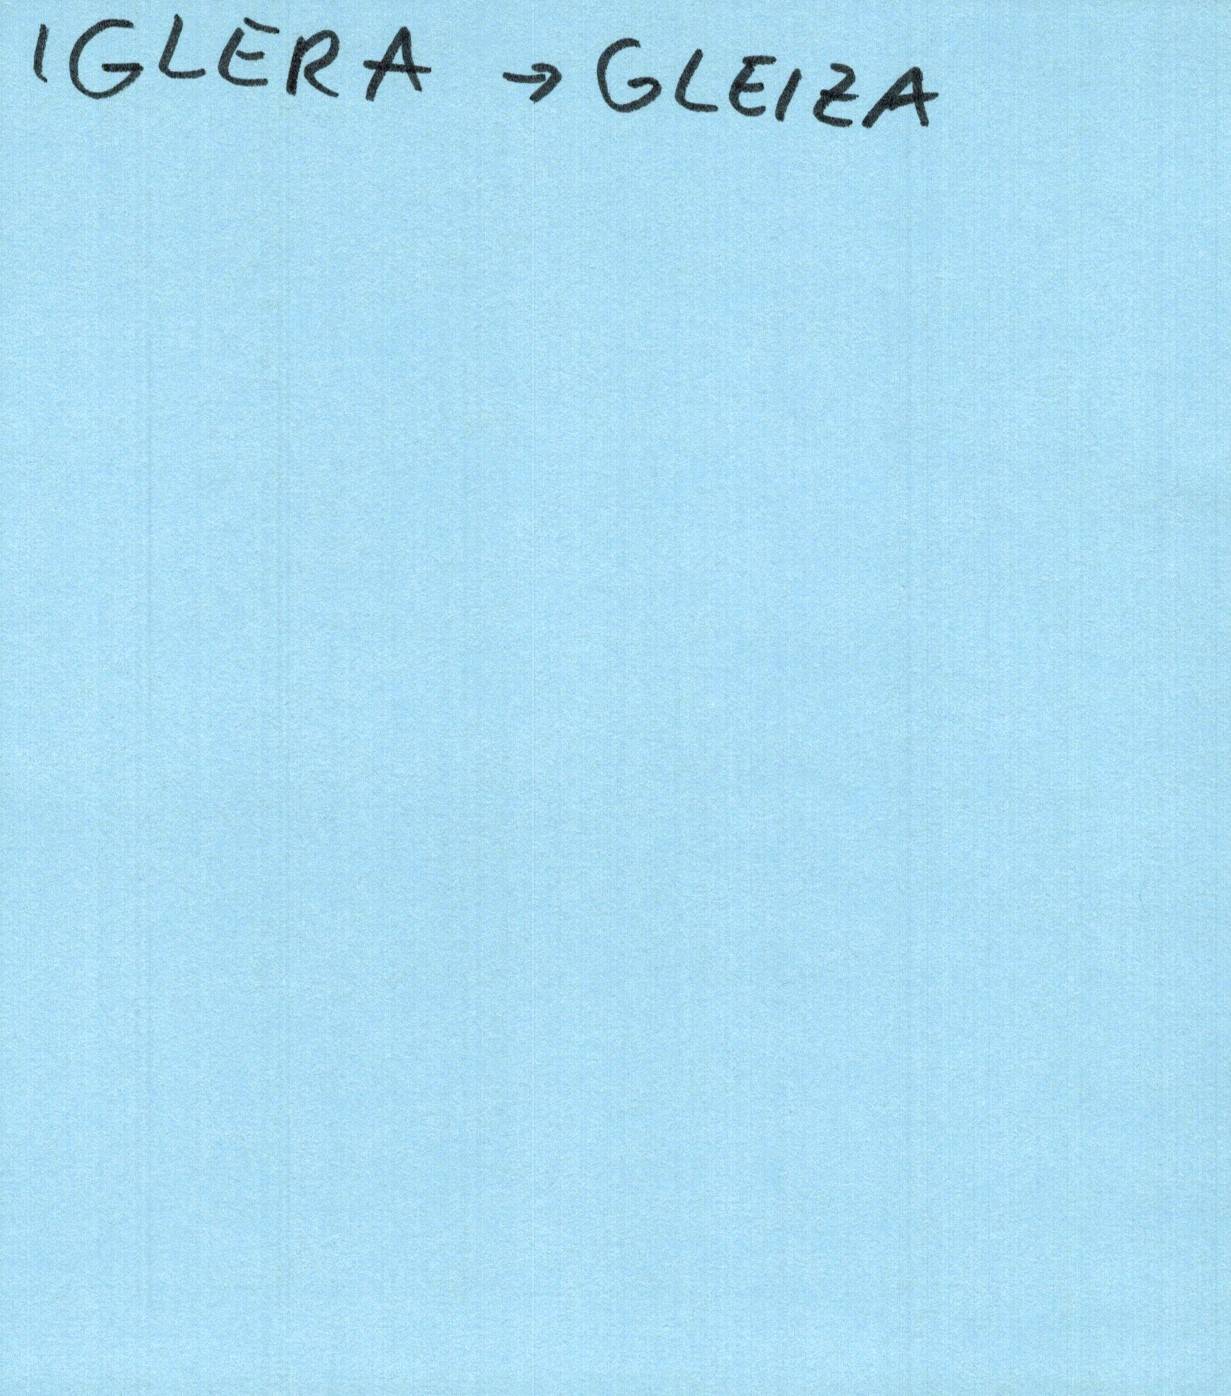 IGLERA → GLEIZA